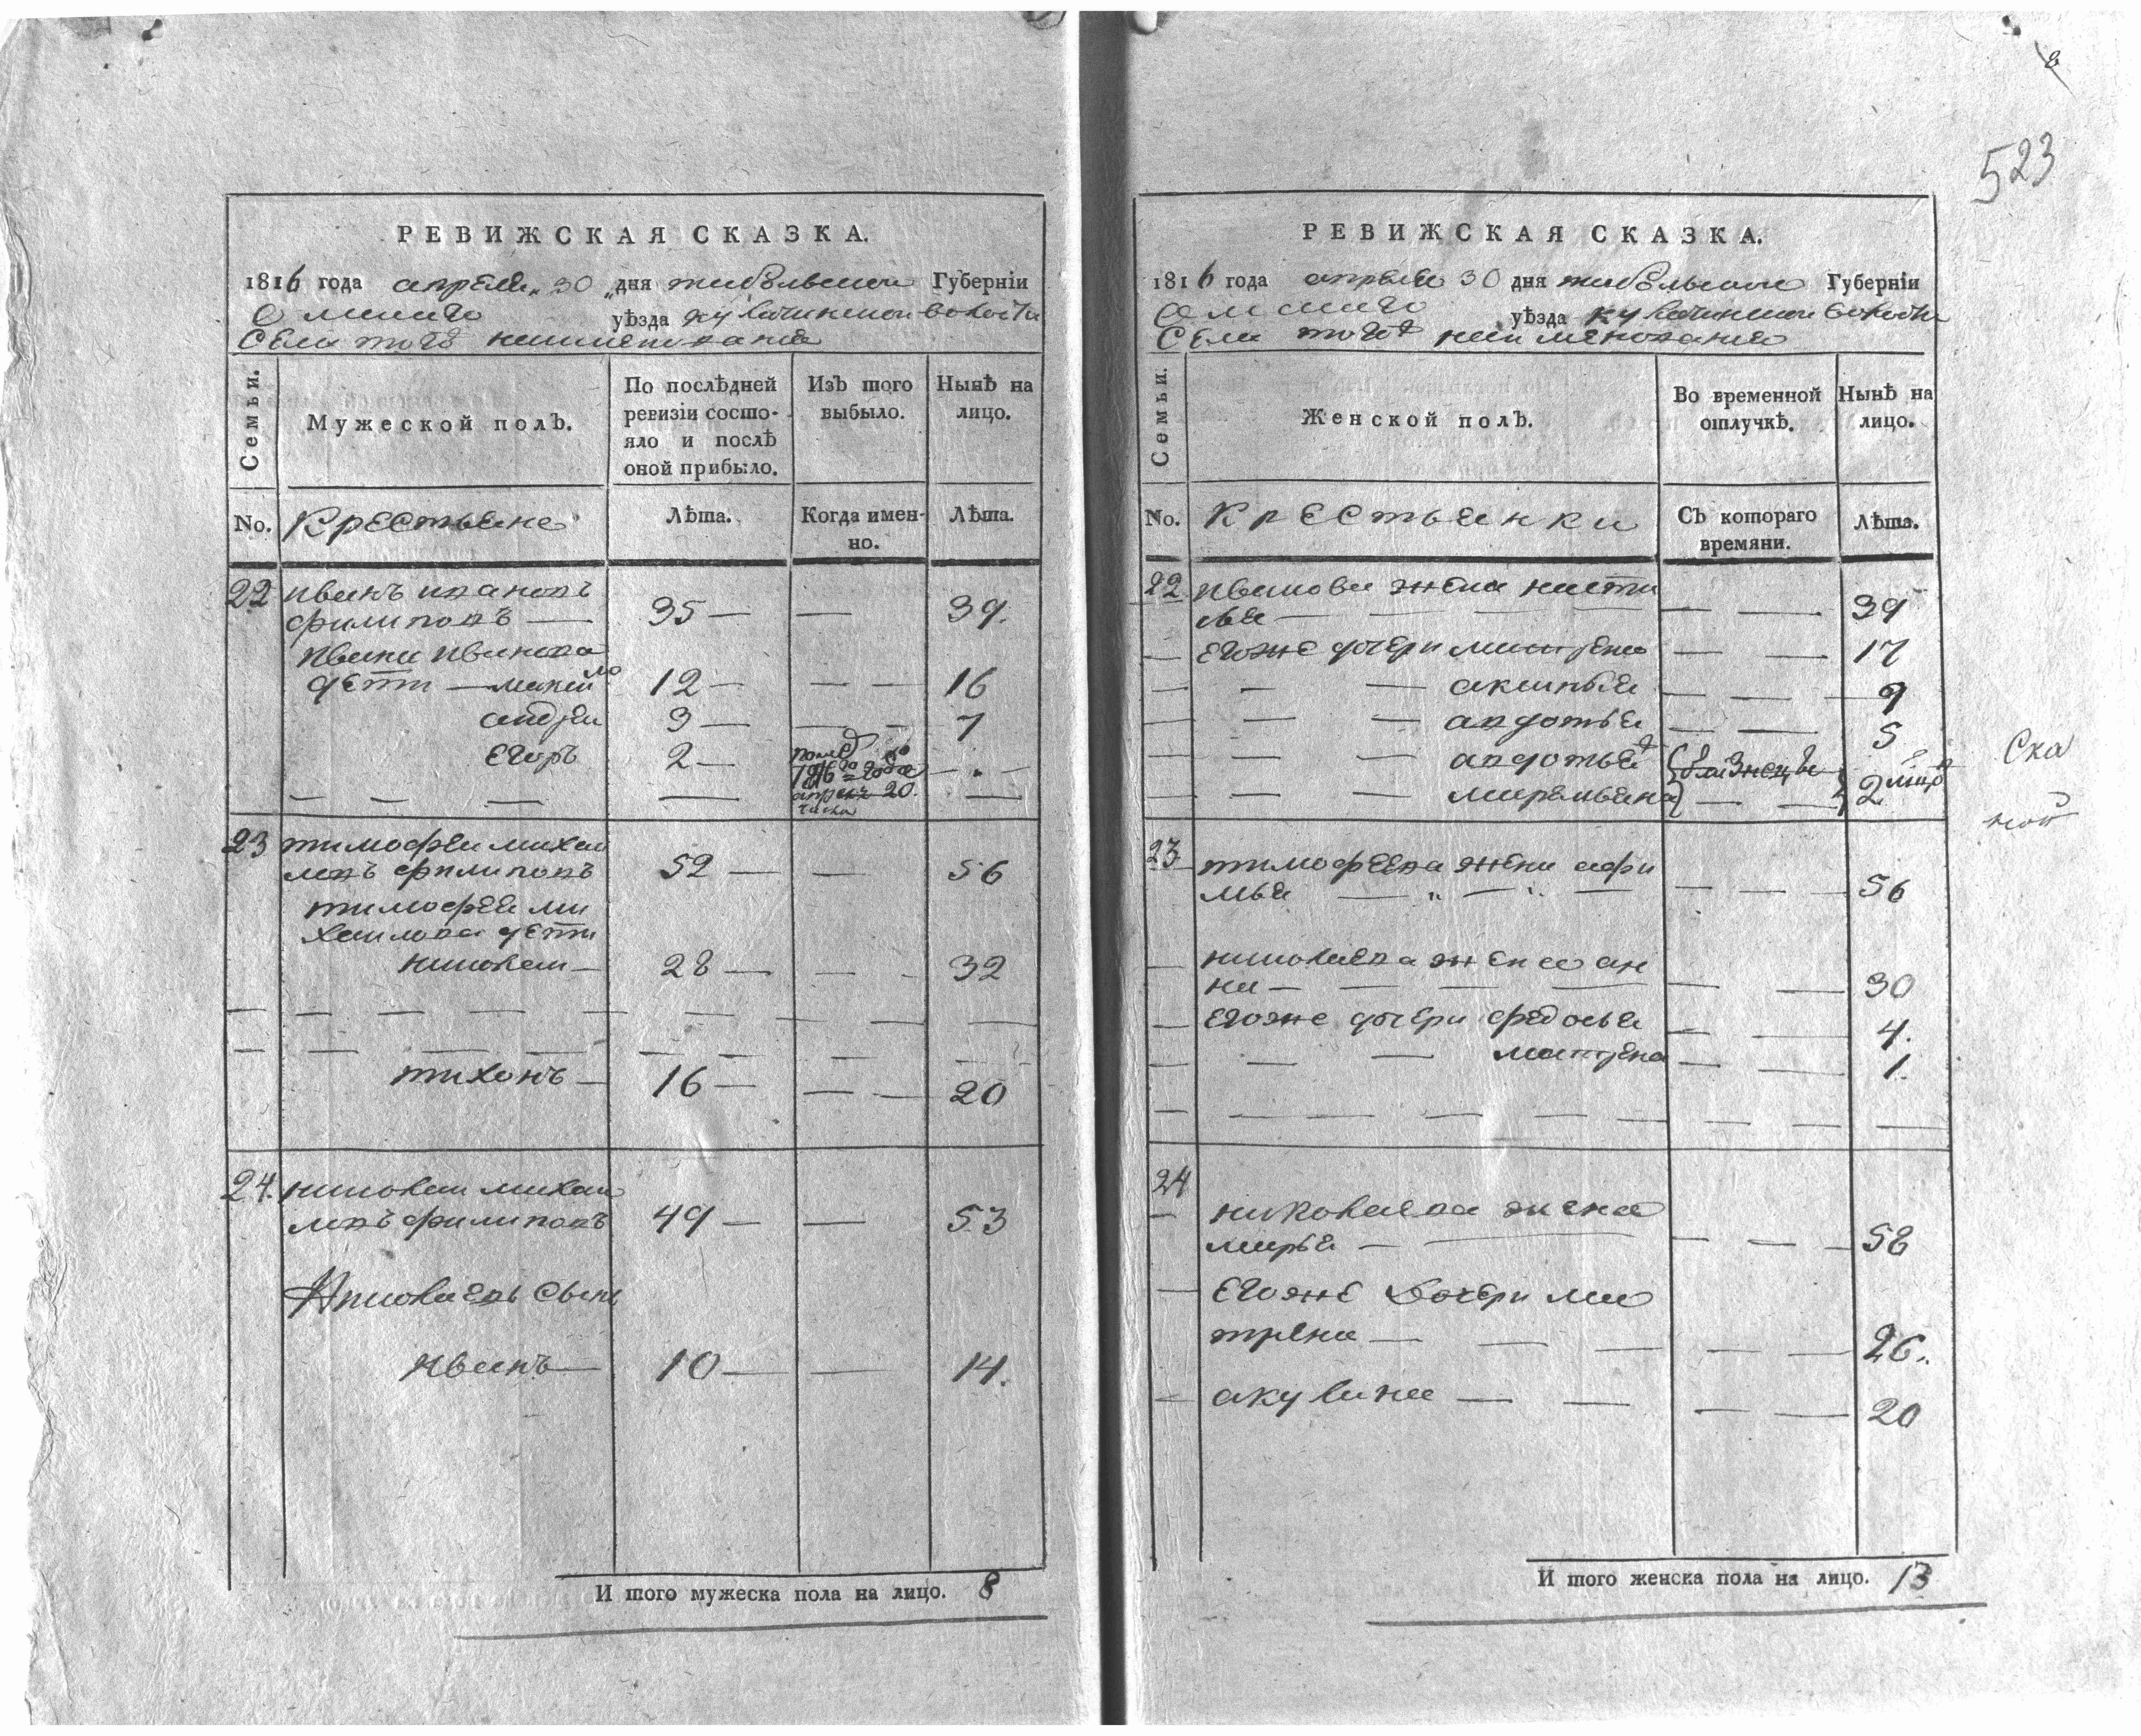 8
523
РЕВИЖСКАЯ СКАЗКА.
1816 года апреля 30 дня тобольской Губерніи
Омскаго уѣзда кулачинской волости
Села тогоъ наименования
Семьи.
Мужеской полъ.
По послѣдней ревизіи состо-
яло и послѣ оной прибыло.
Изъ того выбыло.
Нынѣ на лицо.
No. Крестьяне
Лѣта.
Когда имен-
но.
Лѣта.
22 иванъ иванопъ
филипопъ — 35 — — 39.
ивана иванопа
дети — михаило 12 — — — 16
андреи 3 — — — 7
егоръ 2 — 1816 го года апреля 20. числа — —
23 тимофеи михаи
лопъ филипопъ 52 — — 56
тимофея ми
хаилопа дети
николаи — 28 — — - 32
тихонъ — 16 — — — 20
24. николаи михаи
лопъ филипопъ 49 — — 53
николаепъ сынъ
иванъ — 10 — — 14.
И того мужеска пола на лицо. 8
РЕВИЖСКАЯ СКАЗКА.
1816 года апреля 30 дня тобольской Губерніи
Омскаго уѣзда кулачинской волости
Села тогоъ наименования
Семьи.
Женской полъ.
Во временной отлучкѣ.
Нынѣ на лицо.
No. Крестьянки
Съ котораго времяни.
Лѣта.
22 иванова жена наста
сья — — — — — 39
— егоже дочери матрена — — 17
— — — аксинья — — 9
— — — апдотья — — 5
— — — апдотья близнецы
— — — маремьяна — — 2
23 тимофеепа жена афи
мья — — — — — 56
— николаепа жена ан
на — — — — — 30
— егоже дочери федосья — — 4.
— — — матрена — — 1.
24
— николаепа жена
марья — — — — 58
— егоже дочери ма
трена — — — — 26.
— акулина — — — — 20
И того женска пола на лицо. 13
Ска